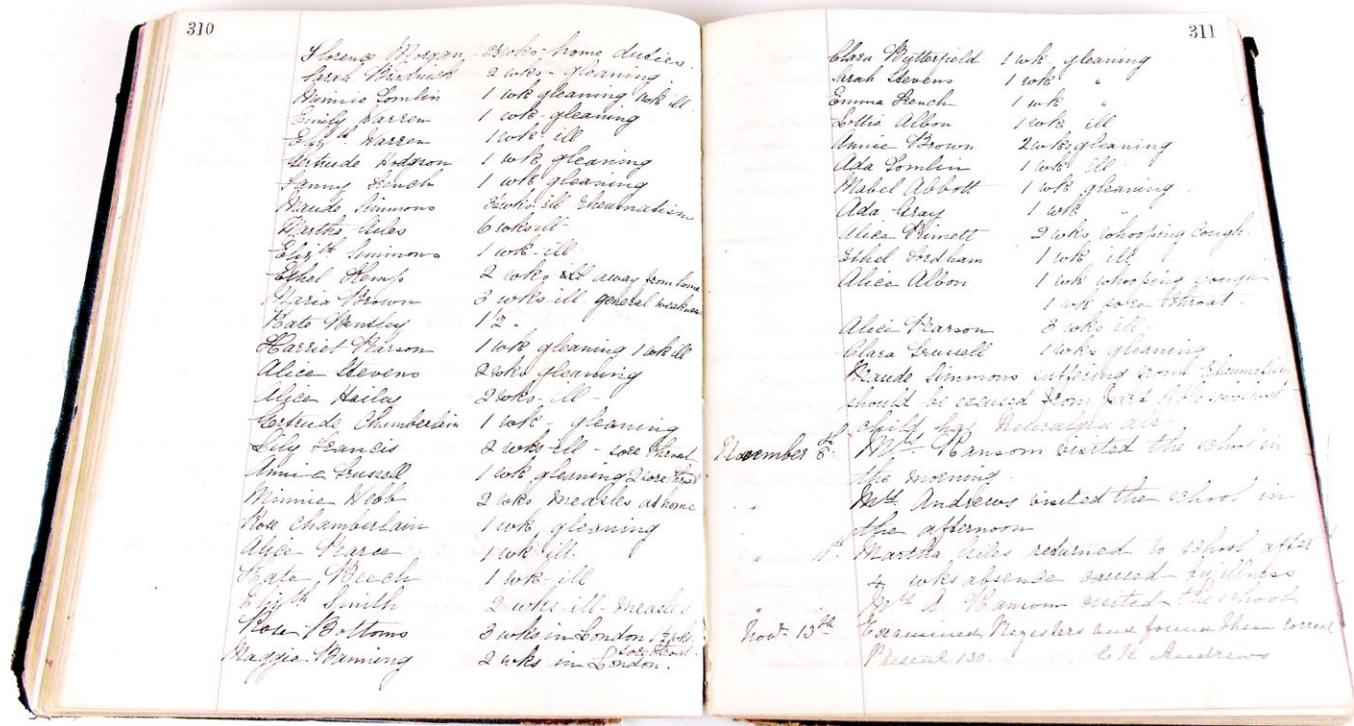 310
Florence Morgan 3 wks - home duties.
Sarah 2 wks - gleaning
Minnie Tomlin 1 wk gleaning 1 wk ill.
Emily Warren 1 wk - gleaning
Elizth. Warren 1 wk ill
Gertrude Hodgson 1 wk gleaning
Fanny French 1 wk gleaning
Maude Simmons wks ill rheumatism
Martha Giles 6 wks ill -
Elizth Simmons 1 wk - ill
Ethel Kemp 2 wks away from home
Maria Brown 3 wks ill general weakness
Kate Bentley 1 2 -
Harriet Pearson 1 wk gleaning 1 wk ill
Alice Stevens 2 wks gleaning
Alice Hailey 2 wks - ill -
Gertrude Chamberlain 1 wk, gleaning
Lily Francis 2 wks - ill - sore throat
Annie Trussell 1 wk gleaning 2 sore throat
Minnie Webb 2 wks measles at home
Rose Chamberlain 1 wk gleaning
Alice Pearce 1 wk ill.
Kate Beech 1 wk - ill
Elizth Smith 2 wks - ill - measles
Rose Bottoms 3 wks in London wks.
sore throat.
Maggie 2 wks in London.
311
Clara Butterfield 1 wk gleaning
Sarah Stevens 1 wk "
Emma French 1 wk "
Lottie Albon 1 wk ill
Annie Brown 2 wks gleaning
Ada Tomlin 1 wk ill
Mabel Abbott 1 wk gleaning.
Ada Gray 1 wk "
Alice 2 wks whooping cough.
Ethel Fordham 1 wk ill
Alice Albon 1 wk whooping cough
1 wk sore throat.
Alice Pearson 3 wks ill.
Clara Trussell 1 wks gleaning
Maude Simmons suffering from rheumatism
should be excused from
child has Neuralgia also
November 8th Mrs. Ransom visited the school in
the morning
" " Mrs. Andrews visited the school in
the afternoon
" 11th Martha Giles returned to school after
4 wks absence caused by illness
Mrs A. Ransom visited the school
Novr 13th Examined Registers and found them correct
Present 130. Andrews